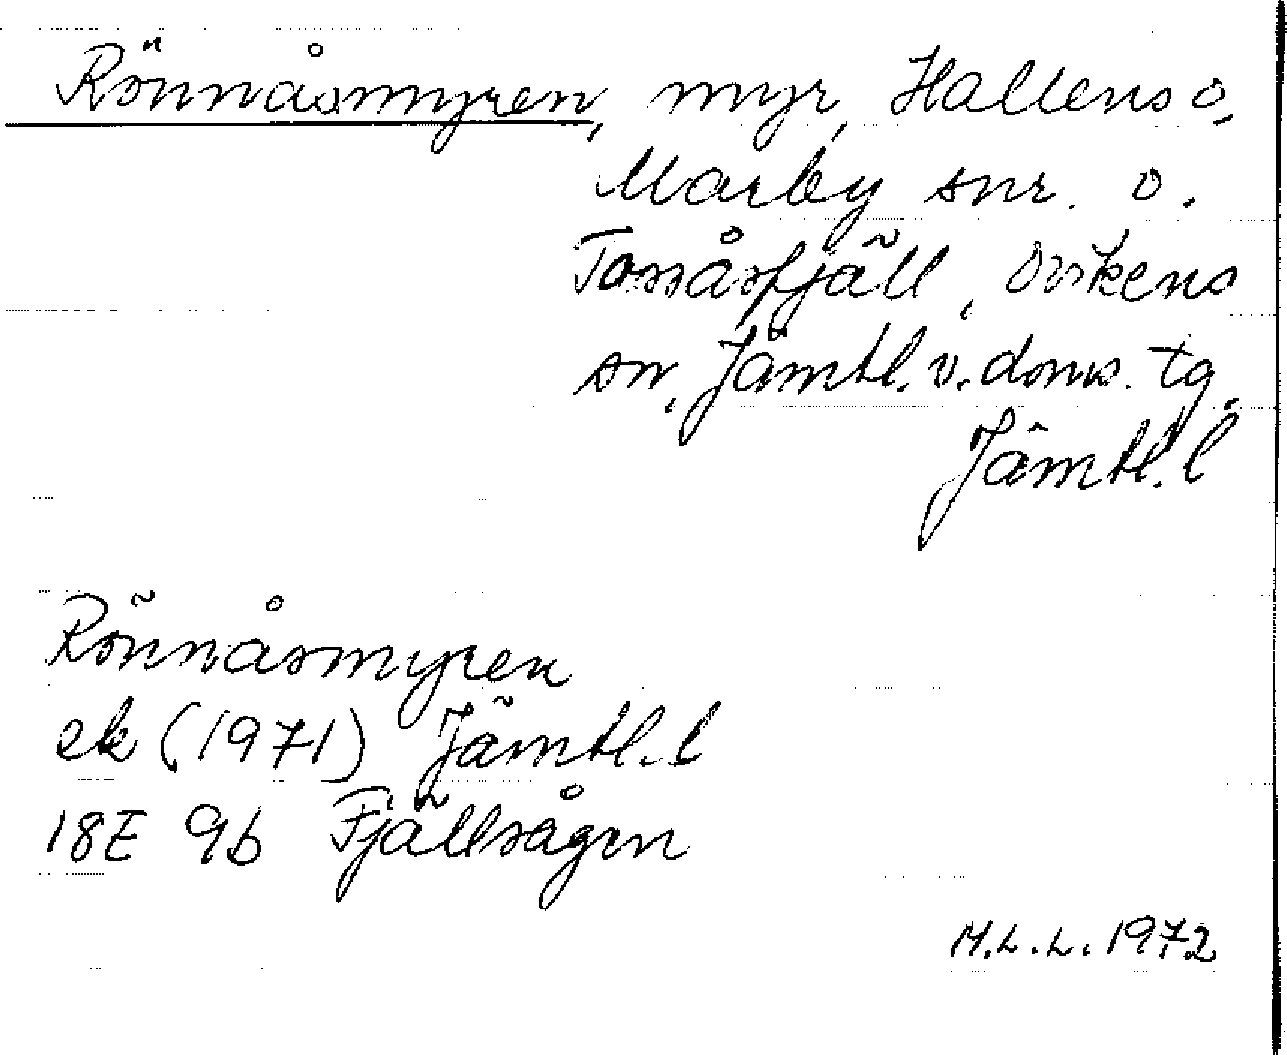 Rönnåsmyren, myr, Hallens o.
Marby snr. o.
Tossåsfjäll, Ovikens
sn, Jämtl. v. doms. tg.
Jämtl. l
Rönnåsmyren
ek (1971) Jämtl. l
18E 9b Fjällsågen
M.L.L. 1972